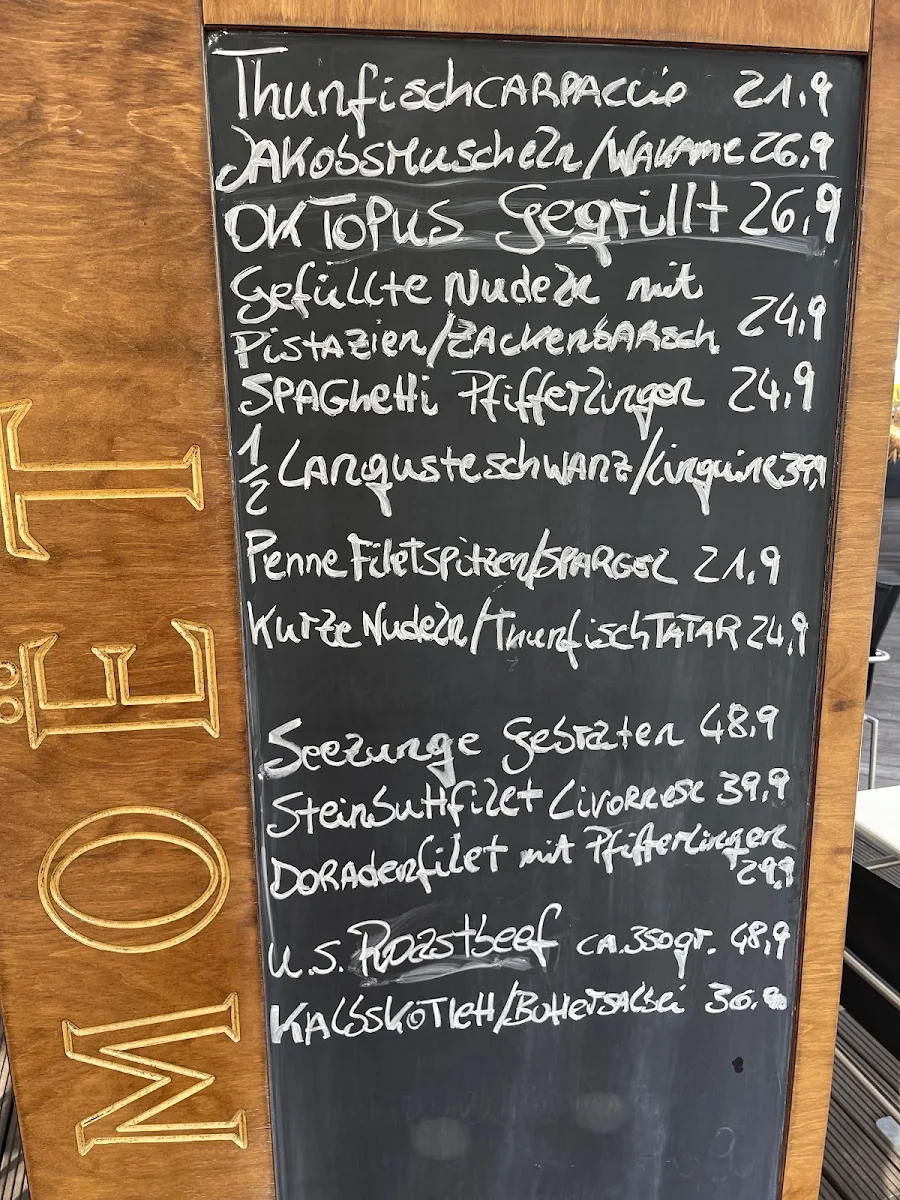 MOËT
ThunfischCARPACCio 21,9
JAKobsMuscheln/WAKAme 26,9
OKToPuS Gegrillt 26,9
Gefüllte Nudeln mit
PistAZien/ZACKenbARsch 24,9
SPAGhetti Pfifferlingen 24,9
1/2 LAngusteschwAnz/Linguine 39,9
Penne Filetspitzen/SPARGEL 21,9
Kurze Nudeln/ThunfischTATAR 24,9
Seezunge Gebraten 48,9
Steinbuttfilet Livornese 39,9
DORAdenfilet mit Pfifferlingen
29,9
U.S. Roastbeef CA.350gr. 48,9
KAlbsKoTlett/ButterSAlbei 36,9